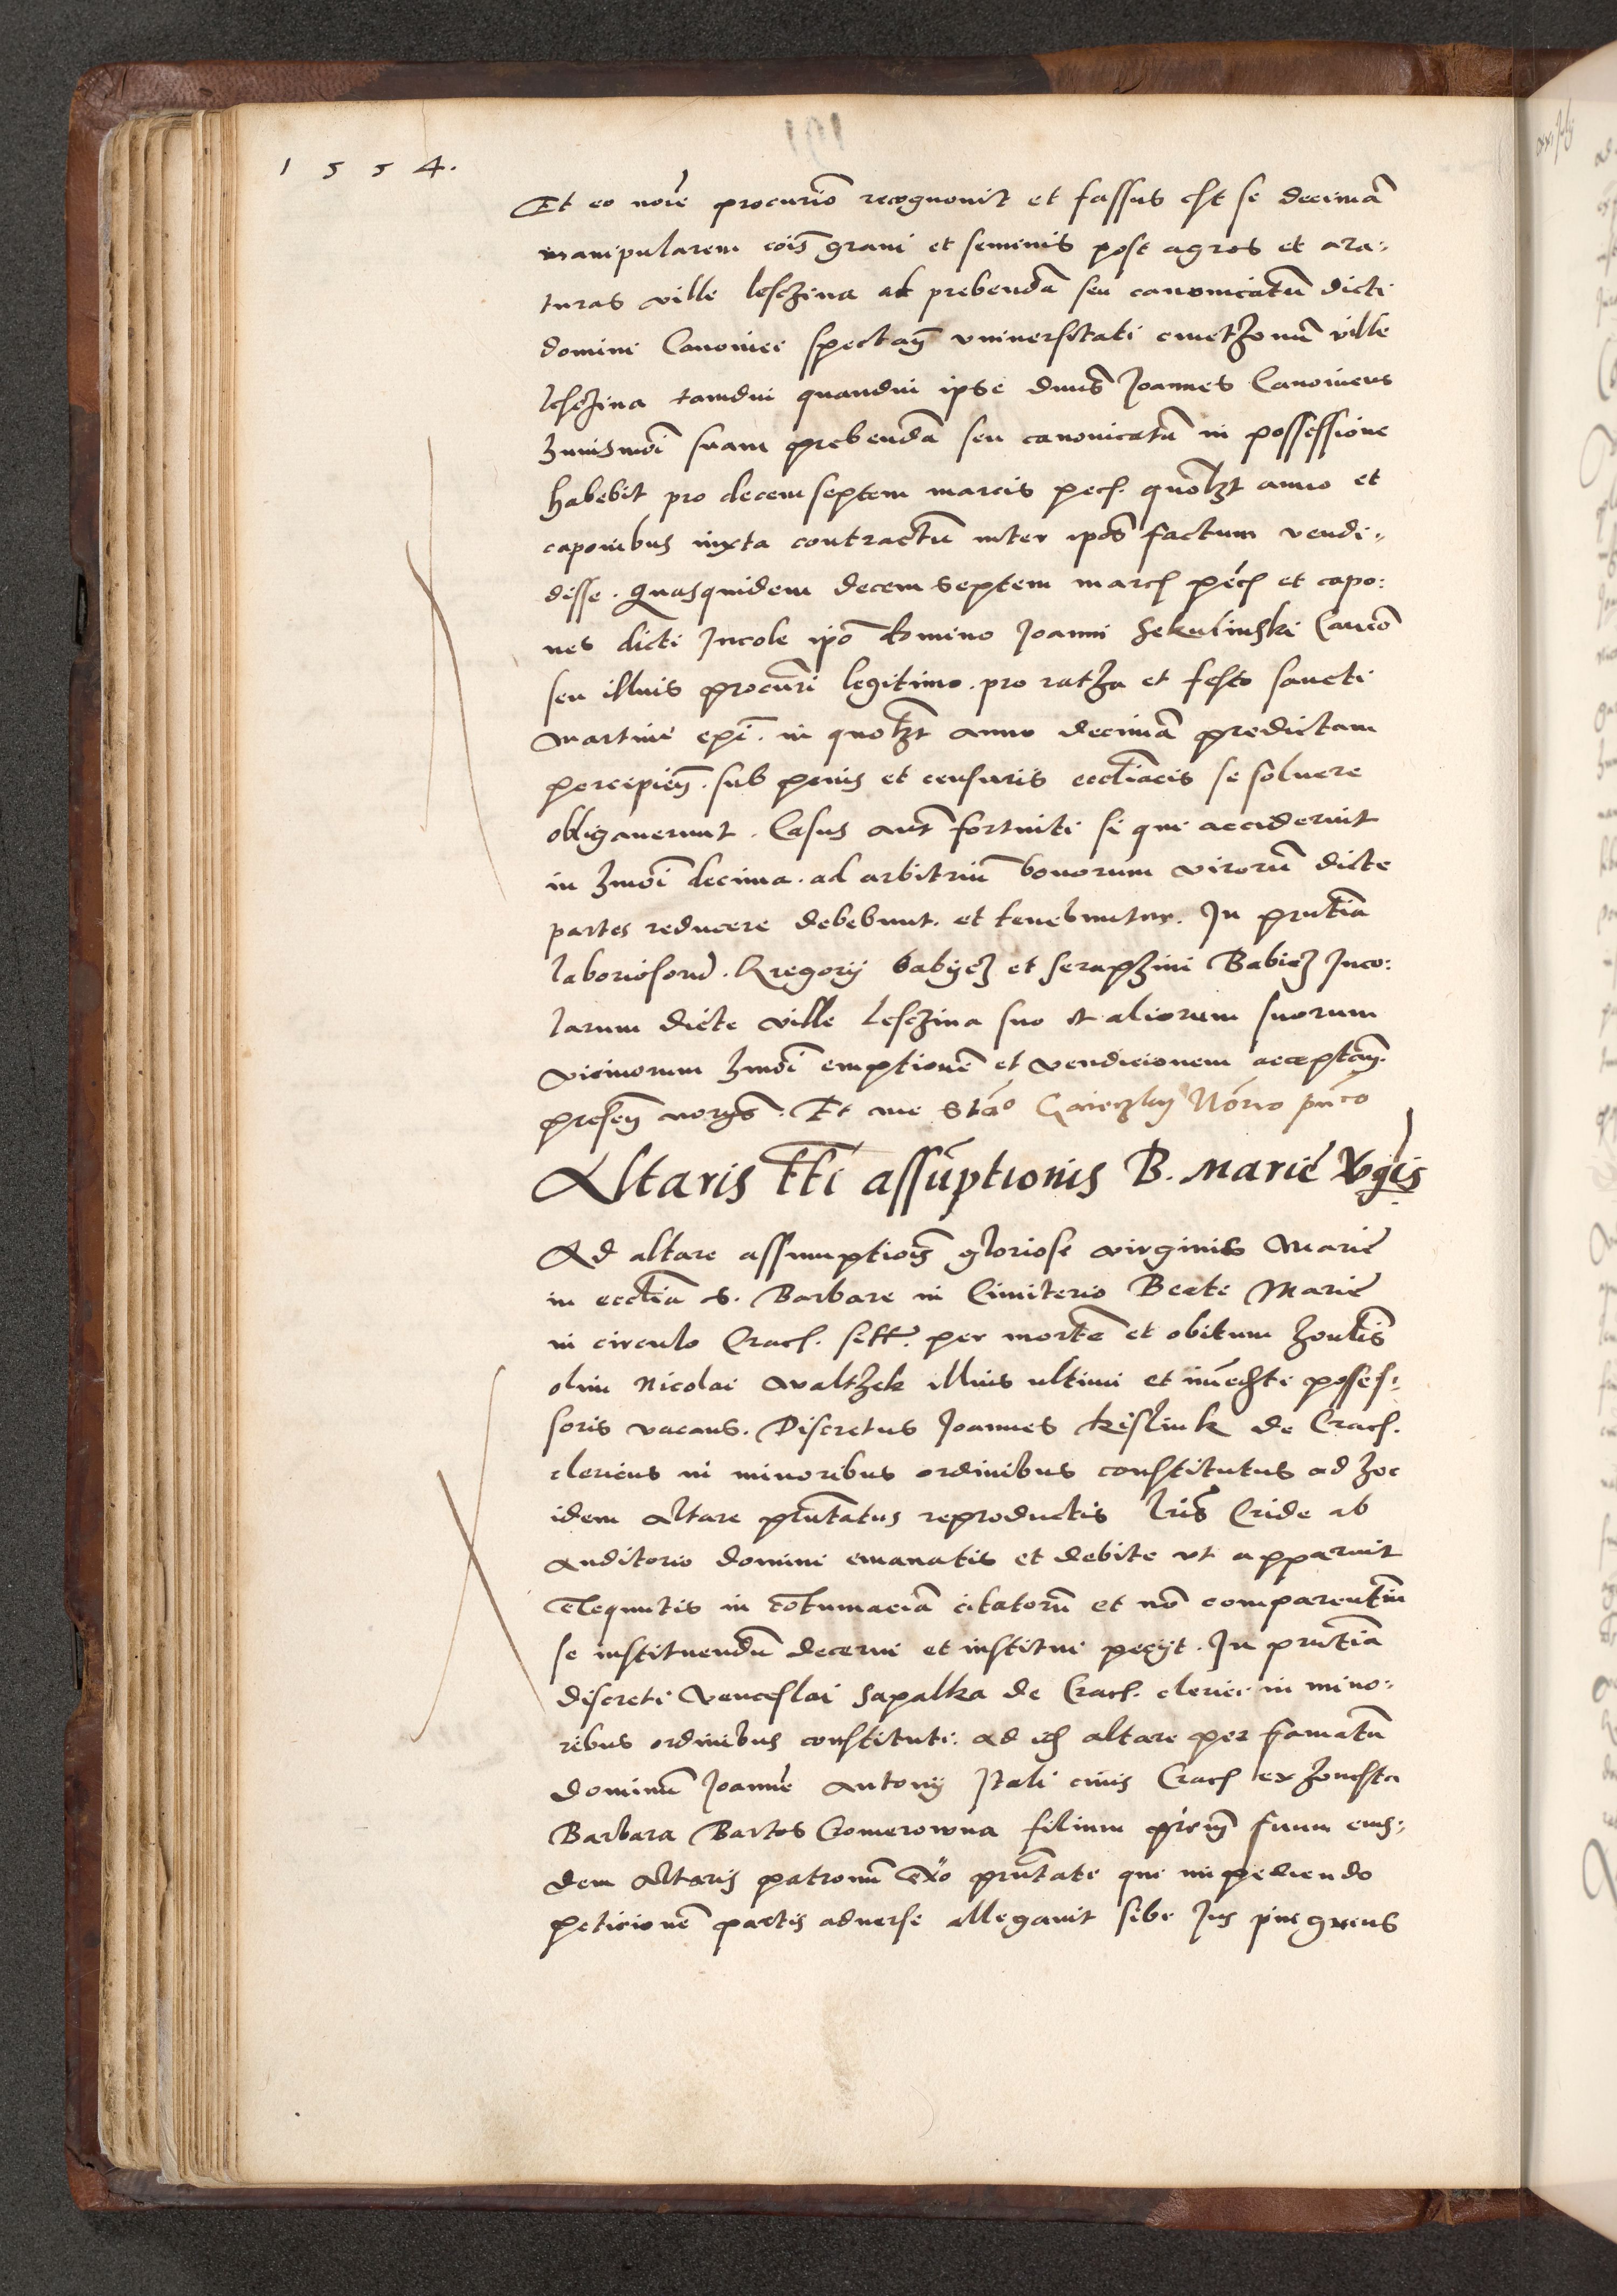 1 5 5 4.
Et eo noīe procurio recognouit et fassus est se decimā
manipularem cois grani et seminis post agros et ara:
turas ville lesczina ad prebendā seu canonicatū dicti
domini Canonici spectan̄ vniuersitati cmethonū ville
lesczina tamdiu quamdiu ipse dnus Joannes Canonicus
hmōi suam prebendā seu canonicatū in possessione
habebit pro decemseptem marcis pecs. quolzt anno et
caponibus iuxta contractū inter ipōs factum vendi:
disse. Quasquidem decem septem marcs pecs et capo:
nes dicti Incole ipō domino Joanni Sekulinski Canco
seu illius procuri legitimo. pro ratha et festo sancti
Martini epī. in quolzt anno decimā predictam
percipien̄. sub penis et censuris ecctiacis se soluere
obligauerunt. Casus aut fortuiti si qui acciderint
in hmōi decima. ad arbitriū bonorum virorū dicte
partes reducere debebunt. et tenebuntur. In pntia
laboriosorū. Gregorij babijcz et seraphini Babicz Inco:
larum dicte ville Lesczina suo et aliorum suorum
vicinorum hmōi emptionē et vendicionem acceptan̄.
presen̄ . Et me Stāo Gaieczky Nōrio pnto
Altaris tti assūptionis B. Marie Vgīs
Ad altare assumptiois gloriose virginis Marie
in ecctia S. Barbare in Cimiterio Beate Marie
in circulo Cracs. per mortē et obitum
olim Nicolai waltzek illius ultimi et posses:
soris vacans. Discretus Joannes kislink de Cracs.
clericus in minoribus ordinibus constitutus ad hoc
idem altare pntatus reproductis lris Cride ab
auditorio domini emanatis et debite ut apparuit
exequutis in cōtumaciā citatorū et nō comparentiū
se instituendū decerni et institui petijt. In pntia
discreti Venceslai Sapalka de Cracs. clerici in mino:
ribus ordinibus constituti. ad id altare per famatū
dominū Joannē Antonij Itali ciuis Cracs ex honesta
Barbara Bartos Cromerowna filium suum eius:
dem altaris patronū pntate qui impediendo
peticionē partis aduerse allegauit sibi Jus